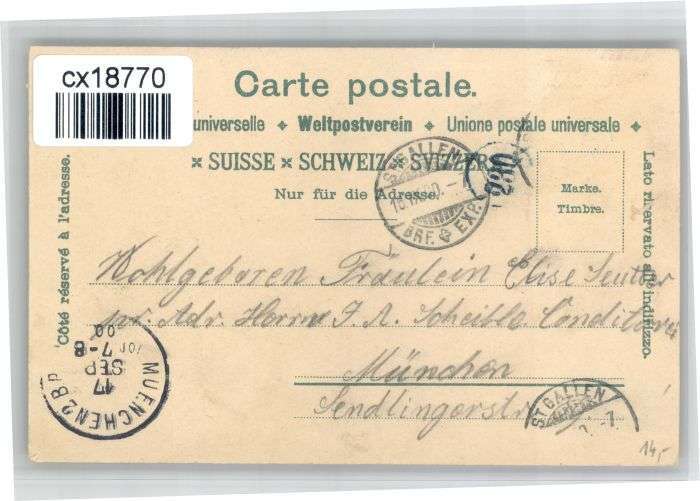 cx18770
Carte postale.
universelle ✦ Weltpostverein ✦ Unione postale universale ✦
× SUISSE × SCHWEIZ × SVIZZERA
Nur für die Adresse.
Marke.
Timbre.
Côté réservé à l'adresse.
Lato riservato all'indirizzo.
ST. GALLEN
BRF. EXP.
230
Wohlgeboren Fräulein Elise Seutter
pr. Adr. Herrn J. A. Scheible Conditor
München
Sendlingerstr.
MUENCHEN 2 B.P
17
SEP
7-8
00
ST. GALLEN
-7
14,-